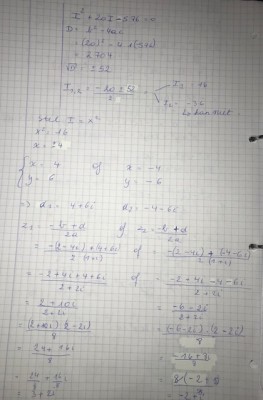 I² + 20I - 576 = 0
D = b² - 4ac
= (20)² - 4·1·(576)
= 2704
√D = ±52
I₁,₂ = (-20 ± 52)/2
I₁ = 16
I₂ = -36
↳ kan niet
I = x²
x² = 16
x = ±4
{ x = 4 of x = -4
y = 6 y = -6
=> d₁ = 4+6i d₂ = -4-6i
z₁ = (-b + d)/2a of z₂ = (-b + d)/2a
= (-(2-4i) + (4+6i))/(2(1+i)) of = (-(2-4i) + (-4-6i))/(2(1+i))
= (-2+4i+4+6i)/(2+2i) of = (-2+4i-4-6i)/(2+2i)
= (2+10i)/(2+2i) = (-6-2i)/(2+2i)
= (2+10i)·(2-2i)/8 = (-6-2i)·(2-2i)/8
= (24+16i)/8
= 24/8 + 16i/8
= 3+2i